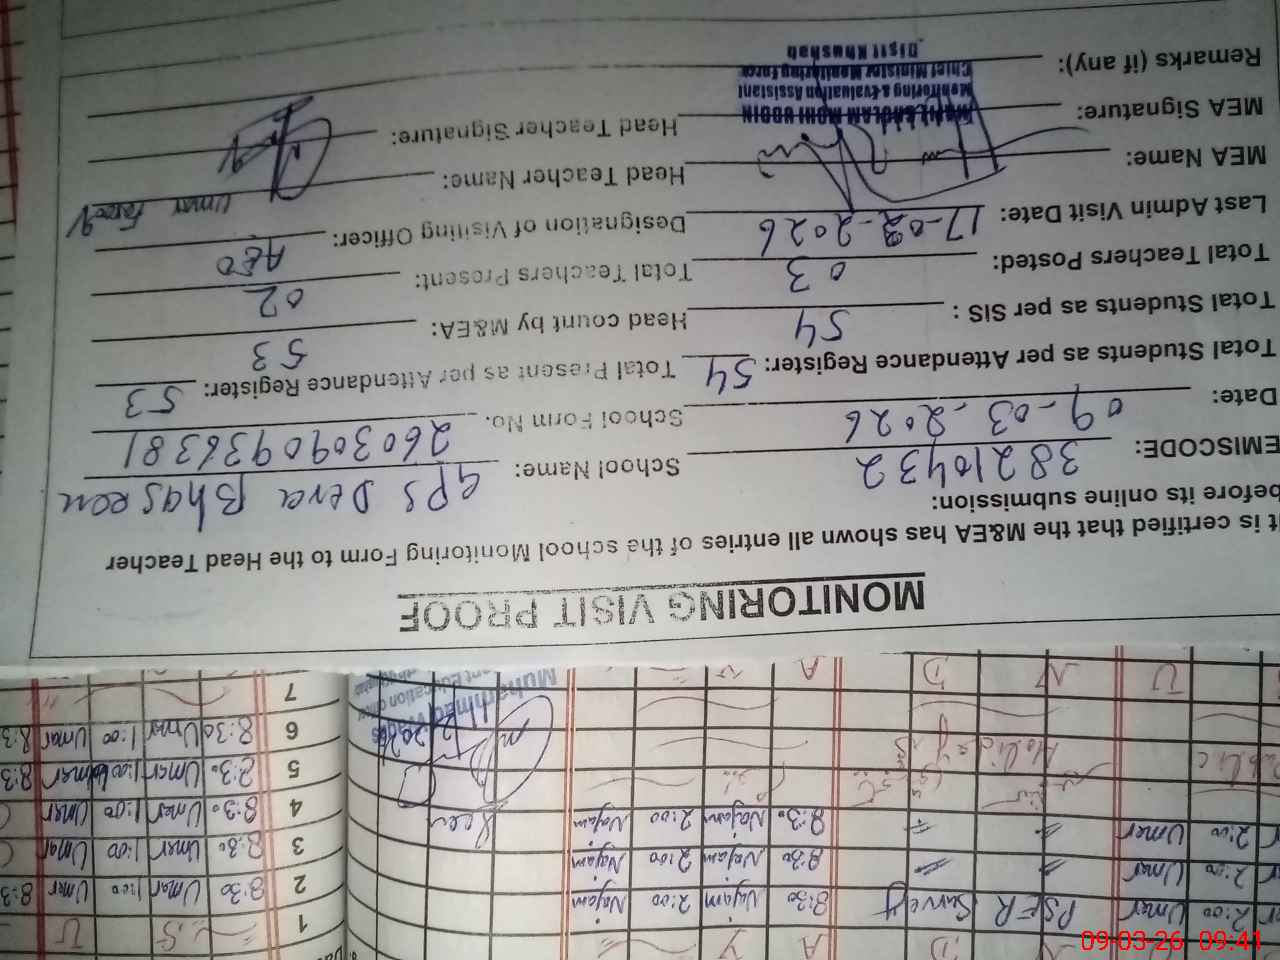 MONITORING VISIT PROOF
It is certified that the M&EA has shown all entries of the school Monitoring Form to the Head Teacher
before its online submission:
EMISCODE: 38210432 School Name: GPS Dera Bhaseen
Date: 09-03-2026 School Form No. 260309093638​1
Total Students as per Attendance Register: 54 Total Present as per Attendance Register: 53
Total Students as per SIS : 54 Head count by M&EA: 53
Total Teachers Posted: 03 Total Teachers Present: 02
Last Admin Visit Date: 17-02-2026 Designation of Visiting Officer: AEO
MEA Name: Head Teacher Name: Umar Farooq
MEA Signature: Head Teacher Signature:
Remarks (if any):
GHULAM MOHI UDDIN
Monitoring & Evaluation Assistant
Chief Minister Monitoring Force
Distt Khushab
1
2 8:30 Umar 1:00 Umar 8:3
3 8:30 Umar 1:00 Umar
4 8:30 Umar 1:00 Umar
5 8:30 Umar 1:00 Umar 8:3
6 8:30 Umar 1:00 Umar 8:3
7
2:00 Umar PSER Survey 8:30 Najam 2:00 Najam
2:00 Umar 8:30 Najam 2:00 Najam
2:00 Umar 8:30 Najam 2:00 Najam
Seen
Public Holiday
Muhammad Waqas
09-03-26 09:41